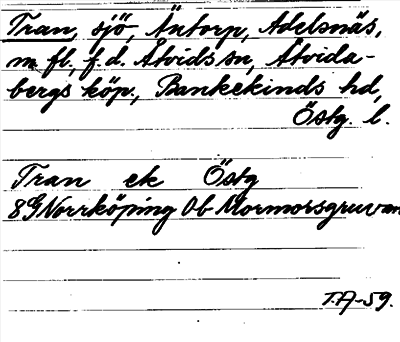 Tran, sjö, Äntorp, Adelsnäs,
m fl, f.d. Åtvids sn, Åtvida-
bergs köp., Bankekinds hd,
Östg. l.
Tran ek Östg
8G Norrköping Ob Mormorsgruvan
T.A-59.